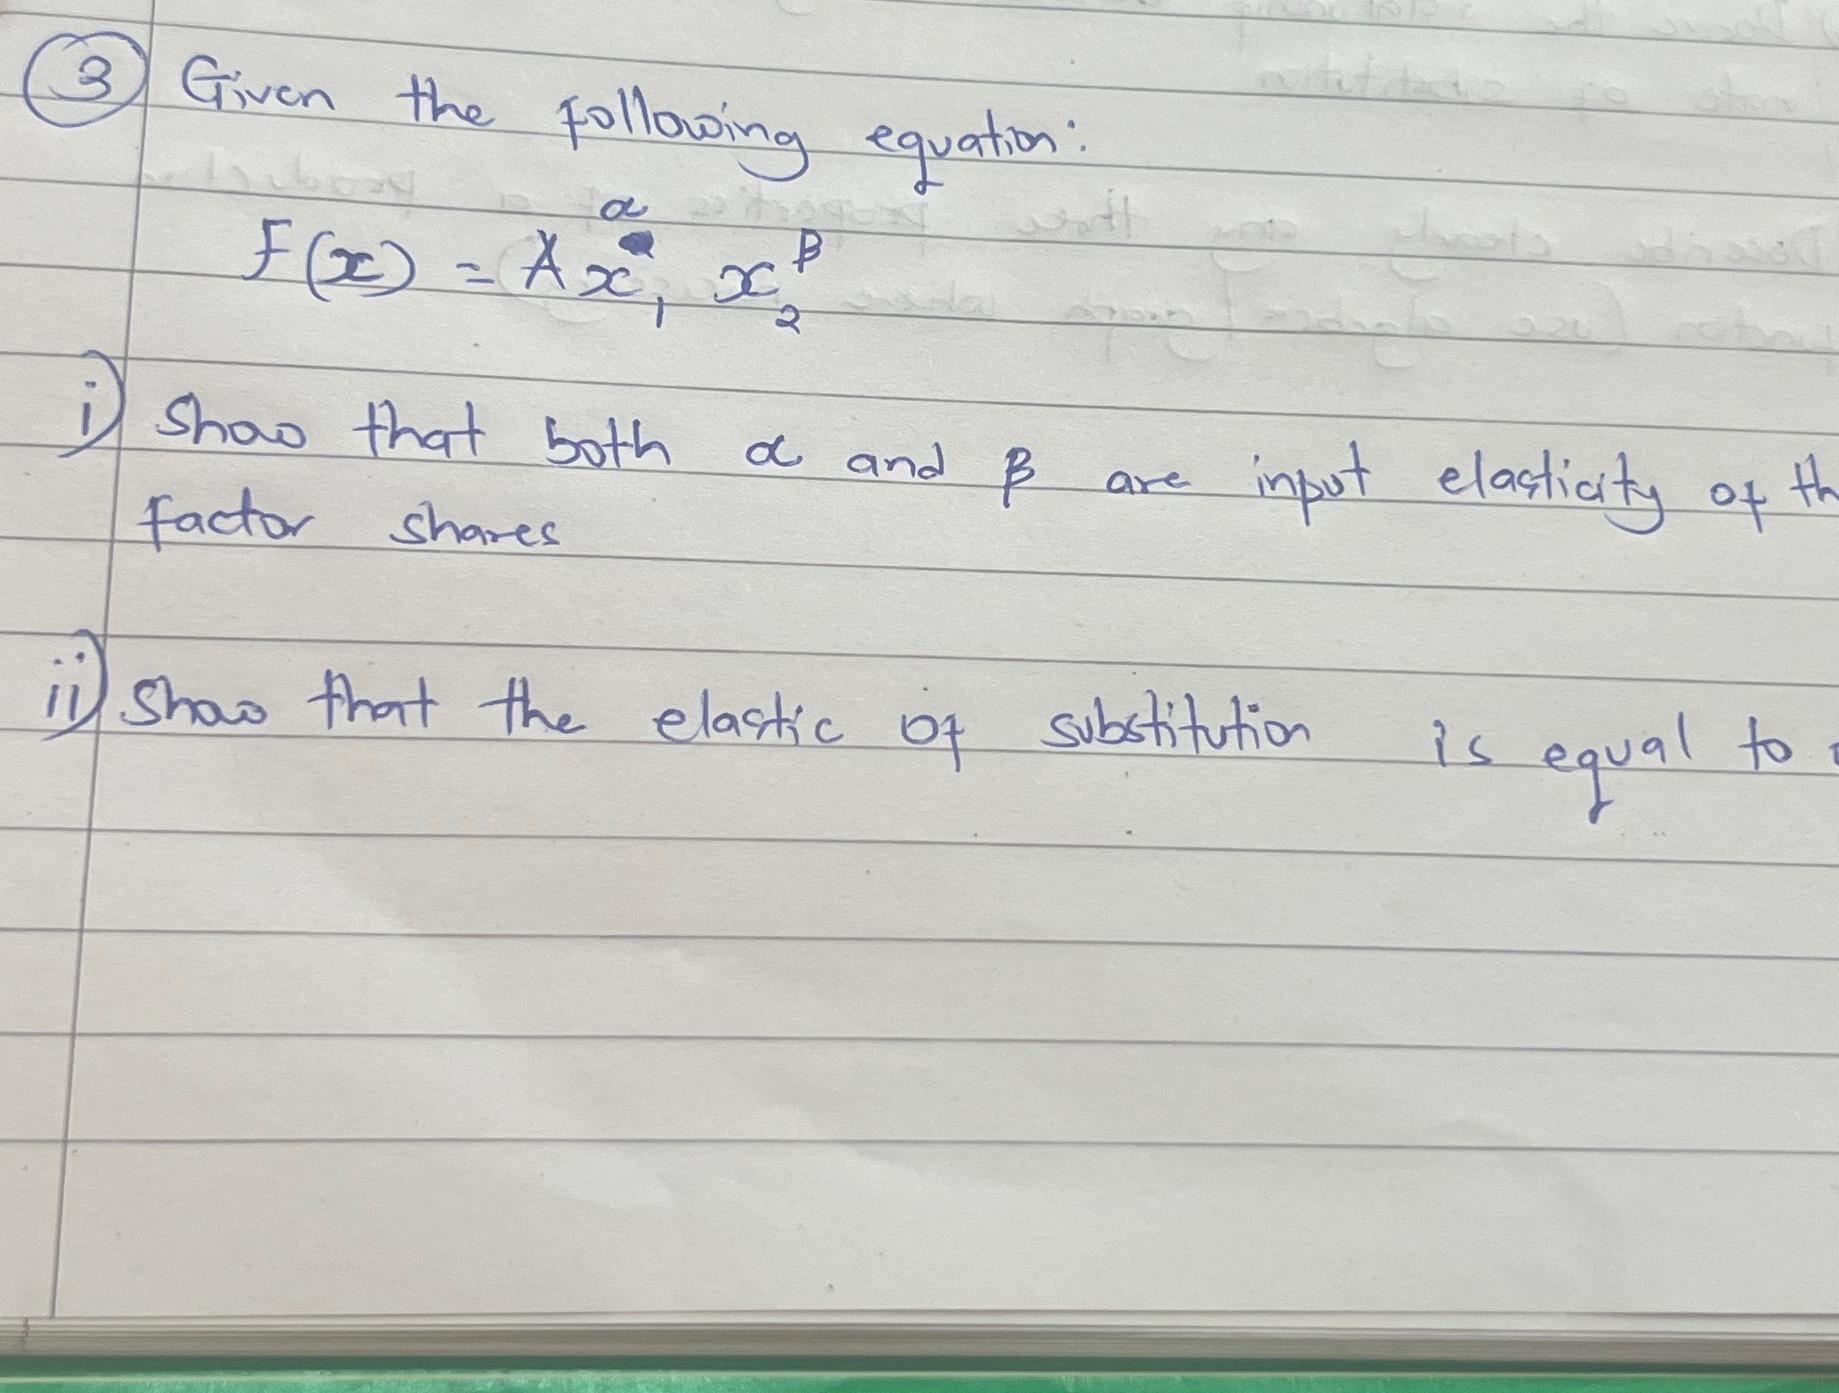 3 Given the following equation:
F(x) = A x₁^α x₂^β
i) Show that both α and β are input elasticity of th
factor shares
ii) Show that the elastic of substitution is equal to